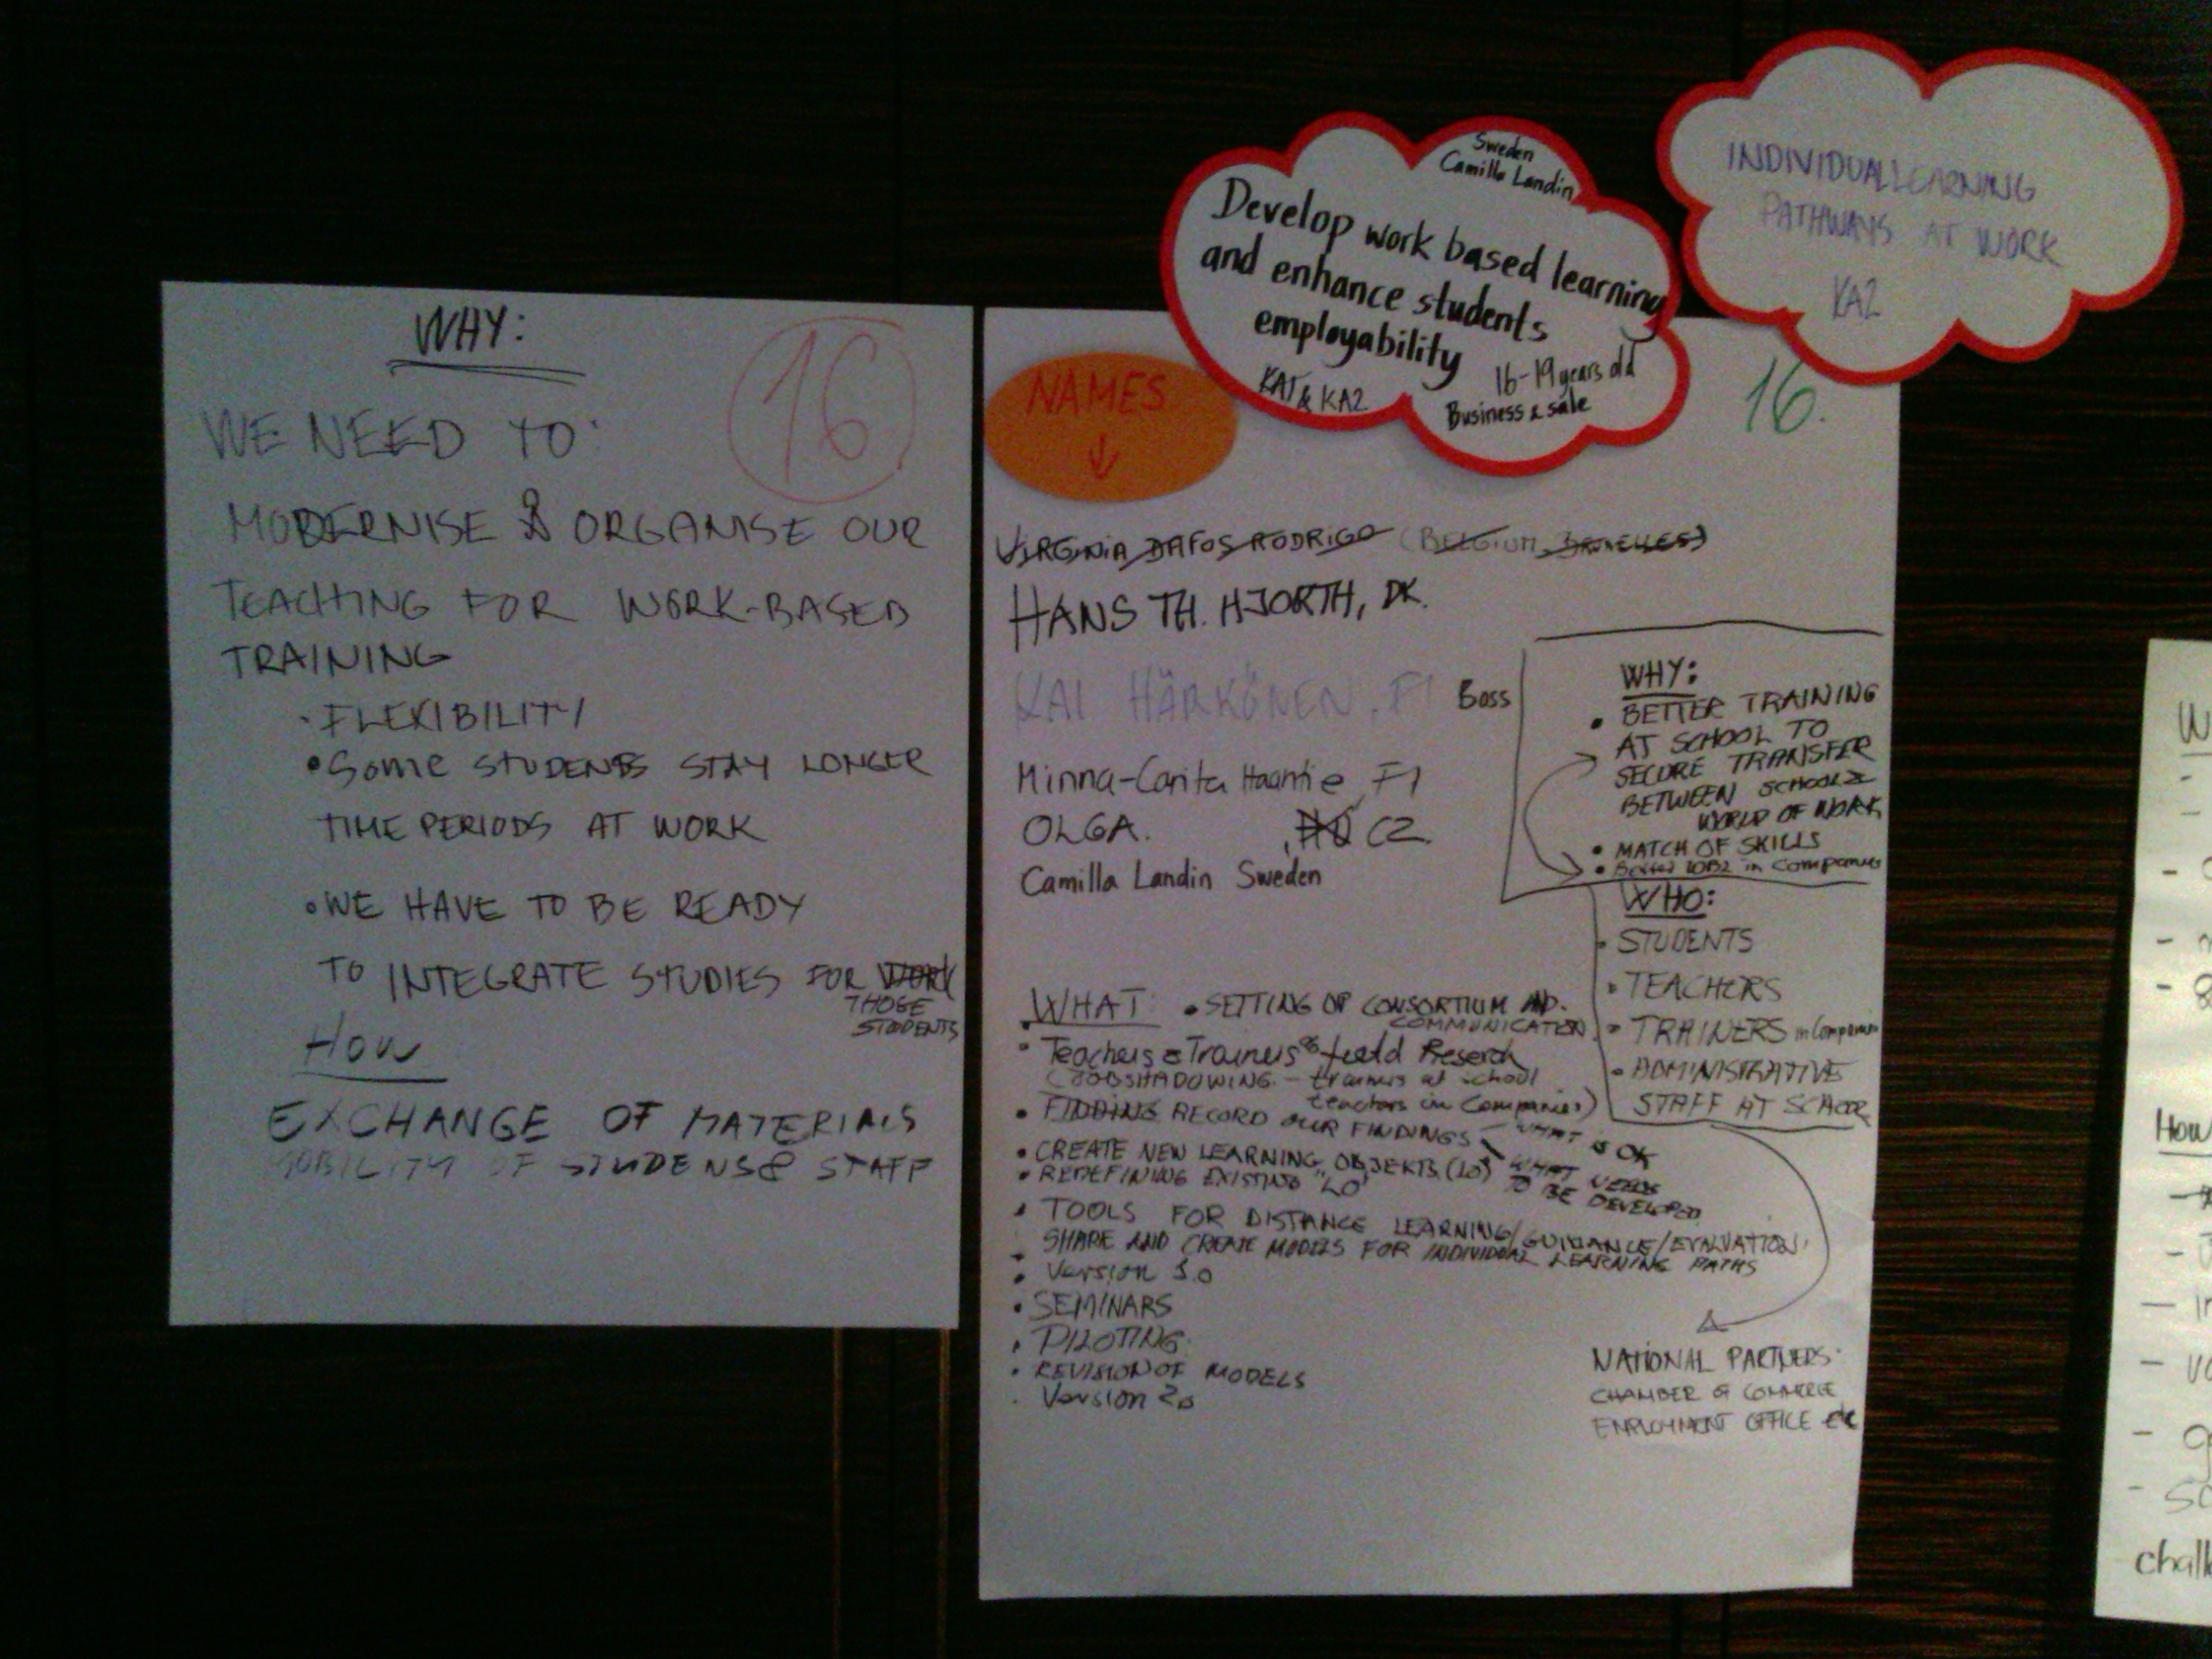 WHY:
16
WE NEED TO:
MODERNISE & ORGANISE OUR
TEACHING FOR WORK-BASED
TRAINING
· FLEXIBILITY
• Some STUDENTS STAY LONGER
TIME PERIODS AT WORK
• WE HAVE TO BE READY
TO INTEGRATE STUDIES FOR WORK
THOSE
STUDENTS
How
EXCHANGE OF MATERIALS
MOBILITY OF STUDENS & STAFF
Sweden
Camilla Landin
Develop work based learning
and enhance students
employability
KA1 & KA2
16-19 years old
Business & sale
INDIVIDUAL LEARNING
PATHWAYS AT WORK
KA2
NAMES
↓
16.
VIRGINIA DAFOS RODRIGO (BELGIUM, BRUXELLES)
HANS TH. HJORTH, DK.
KAI HÄRKÖNEN, FI Boss
Minna-Carita Haantie FI
OLGA. CZ
Camilla Landin Sweden
WHY:
• BETTER TRAINING
AT SCHOOL TO
SECURE TRANSFER
BETWEEN SCHOOL &
WORLD OF WORK
• MATCH OF SKILLS
• Better in Companies
WHO:
• STUDENTS
• TEACHERS
• TRAINERS in Companies
• ADMINISTRATIVE
STAFF AT SCHOOL
WHAT: • SETTING OF CONSORTIUM AND.
COMMUNICATION
• Teachers & Trainers field Reserch
(JOBSHADOWING - trainers at school
teachers in Companies)
• FINDING RECORD OUR FINDINGS - WHAT IS OK
WHAT NEEDS
TO BE DEVELOPED
• CREATE NEW LEARNING OBJEKTS (LO)
• REDEFINING EXISTING "LO"
• TOOLS FOR DISTANCE LEARNING/GUIDANCE/EVALUATION
SHARE AND CREATE MODELS FOR INDIVIDUAL LEARNING PATHS
• Version 1.0
• SEMINARS
• PILOTING
• REVISION OF MODELS
· Version 2.0
NATIONAL PARTNERS:
CHAMBER OF COMMERCE
EMPLOYMENT OFFICE etc
How